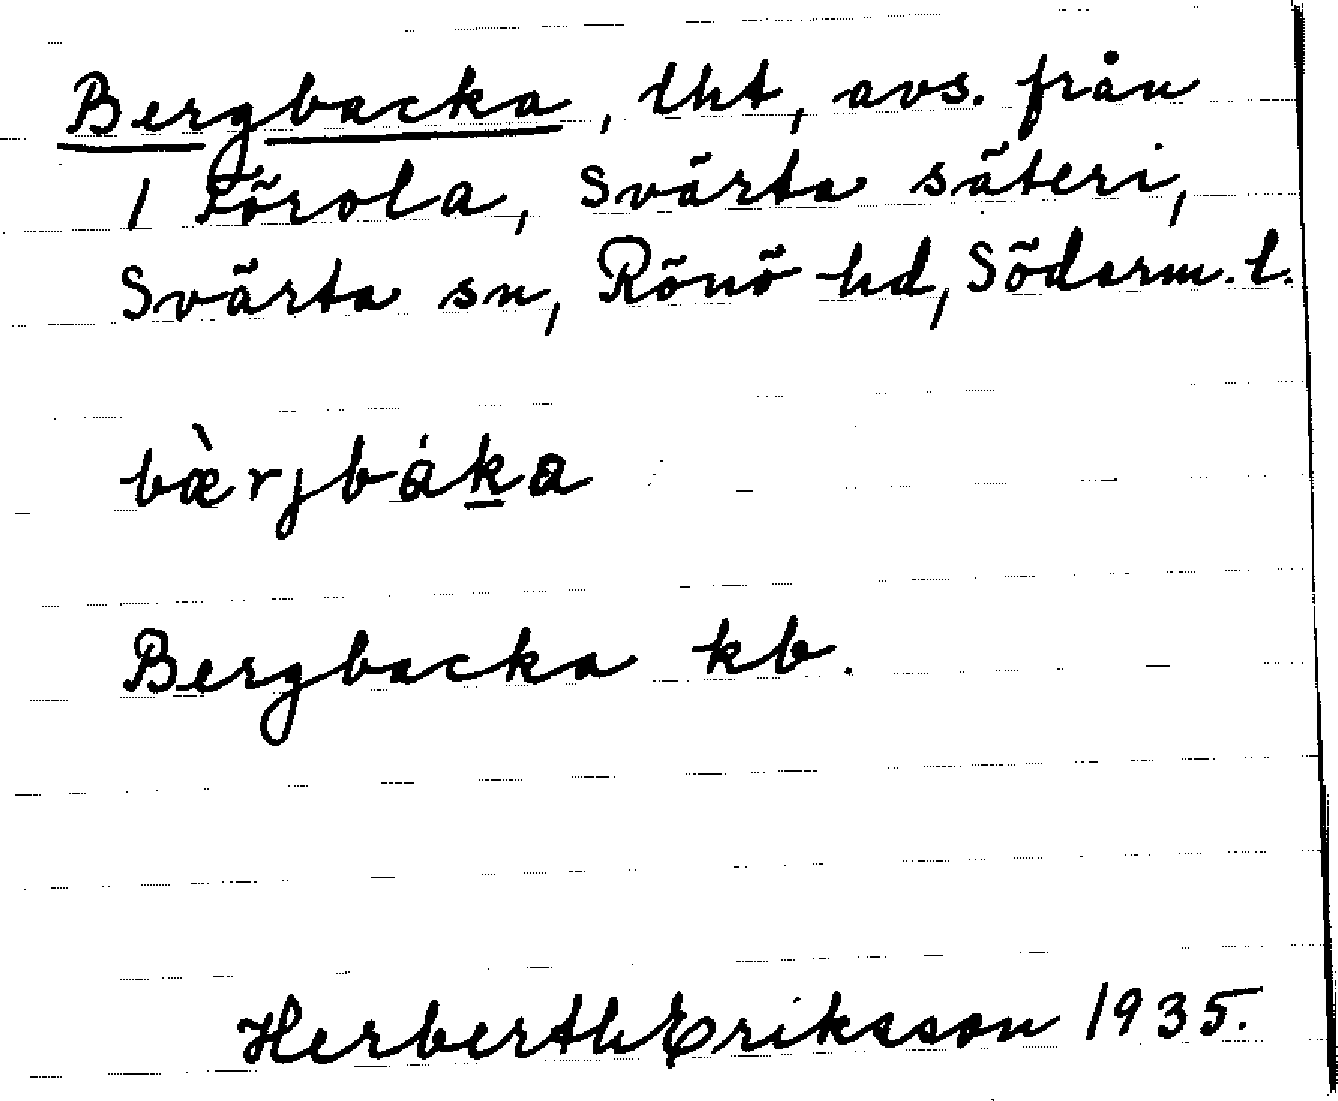 Bergbacka, lht, avs. från
1 Förola, Svärta säteri,
Svärta sn, Rönö hd, Söderm. l.
bæ̀rjbák̲a
Bergbacka kb.
Herberth Eriksson 1935.